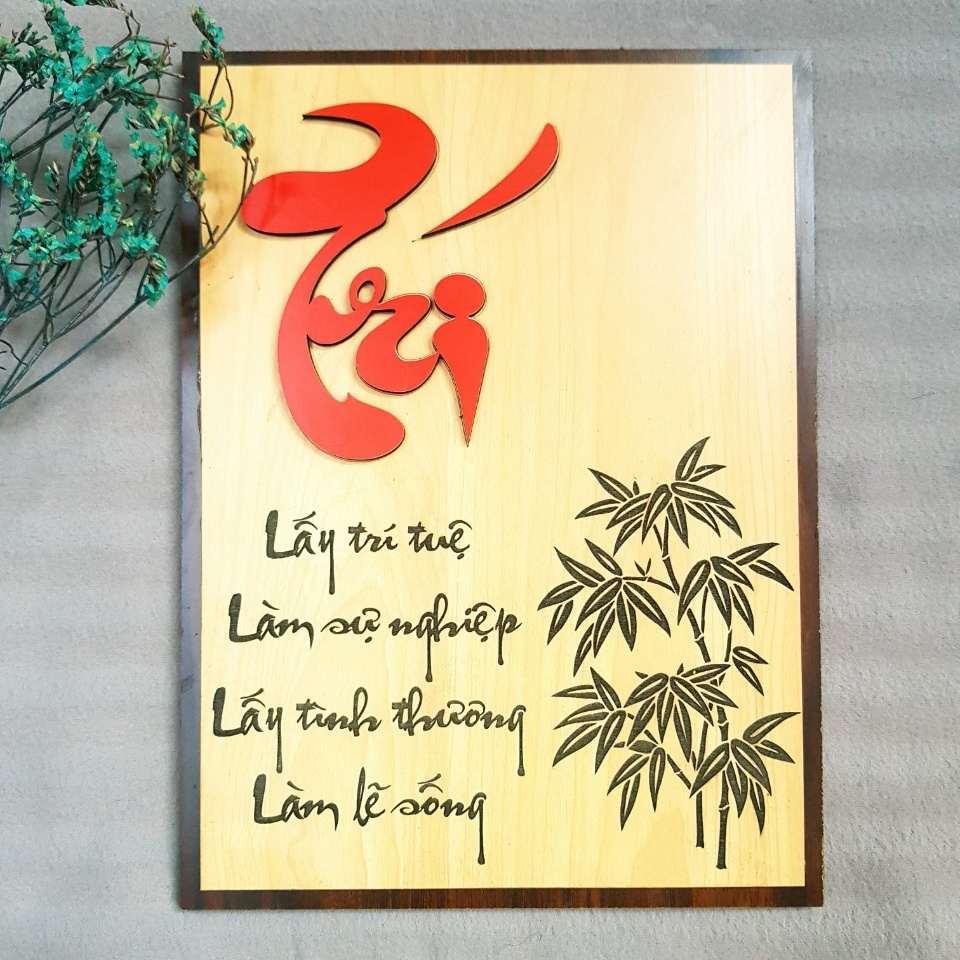 Trí
Lấy trí tuệ
Làm sự nghiệp
Lấy tình thương
Làm lẽ sống